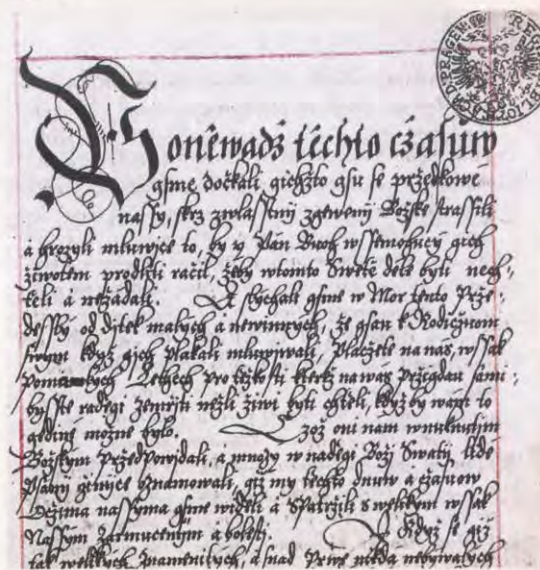 Poněwadż těchto cżasůw
gsme dočkali gichżto gsu se przedkowé
nassy, skrz zwlasstnij zgewenij Bożské strassili
a hrozyli mluwjce to, by y Pán Buoh wssemohucý gich
żiwotem prodlíti ráčil, żeby wtomto Swětě déle byli nech-
těli á neżádali. A slychali gsme w Mor tento Prże-
dessly od djtek malých á newinných, że gsau k Rodičuom
swým když gich plakali mluwjwali, Plačete na nás, wssak
Pominulých Letech pro těżkosti kteréż na wás Przigdau sami
byste radègi zemrzjti neżli żiwi byli chtěli, kdyżby wám to
gediné możné bylo. Czoż oni nám wnuknutjm
Bożským Przedpowjdali, á mnozý w naděgi Boží Swatij Lidé
Psanij ginijce oznamowali, giż my těchto dnuw á cżasuow
Oczima nassyma gsme widěli á Spatrżili s welikým wssak
Nassým zarmucenijm á bolestj. I Kdyż se giż
tak welikých Znamenitých, á snad Prwé nikdá nebywalých